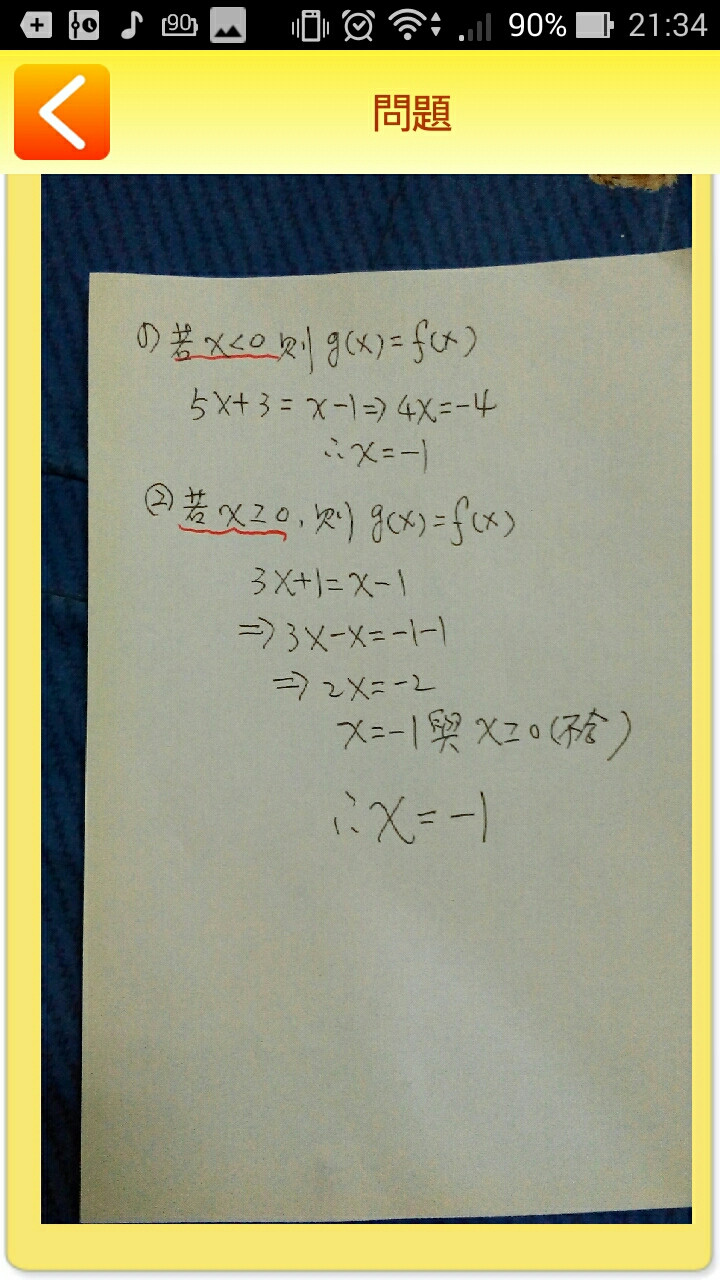 90
90%
21:34
問題
(1) 若 x<0 則 g(x)=f(x)
5x+3=x-1⇒4x=-4
∴x=-1
② 若 x≥0, 則 g(x)=f(x)
3x+1=x-1
⇒3x-x=-1-1
⇒2x=-2
x=-1 與 x≥0(不合)
∴x=-1